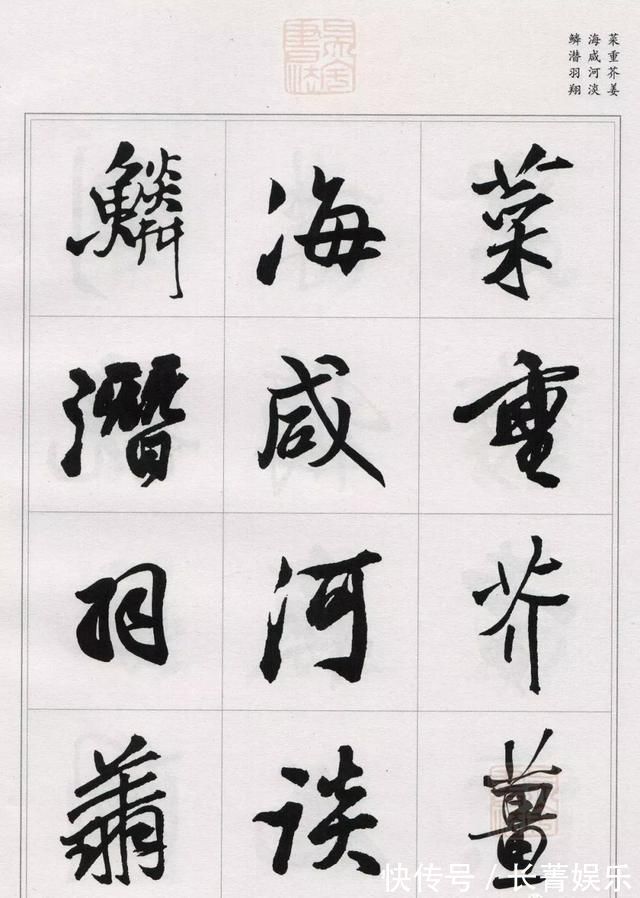 菜重芥姜
海咸河淡
鳞潜羽翔
菜重芥薑
海咸河淡
鱗潛羽翔
快传号/长菁娱乐